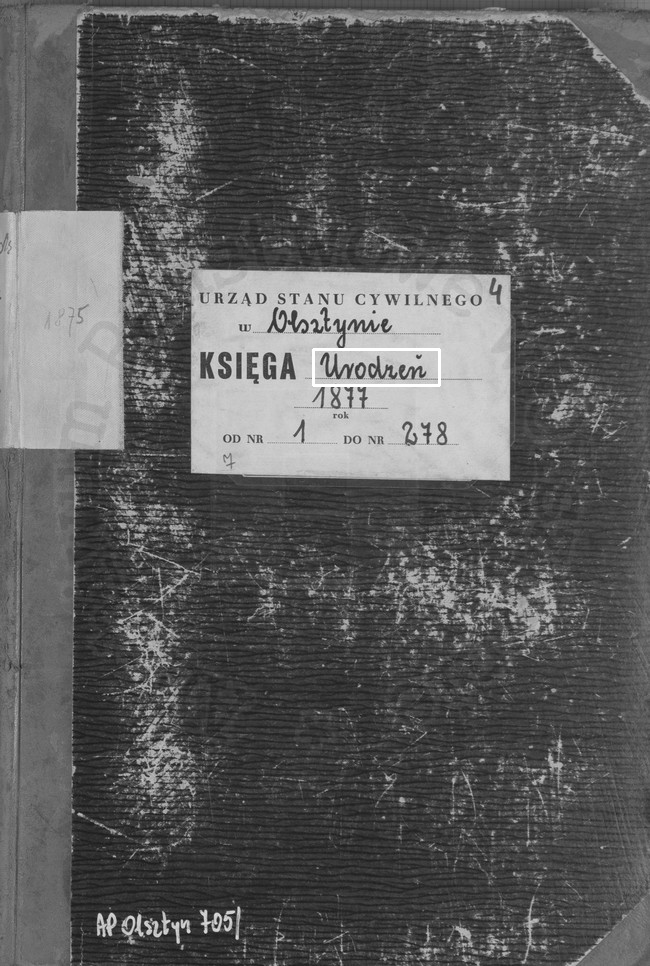 1875
URZĄD STANU CYWILNEGO 4
w Olsztynie
KSIĘGA Urodzeń
1877
rok
OD NR 1 DO NR 278
7
AP Olsztyn 705/